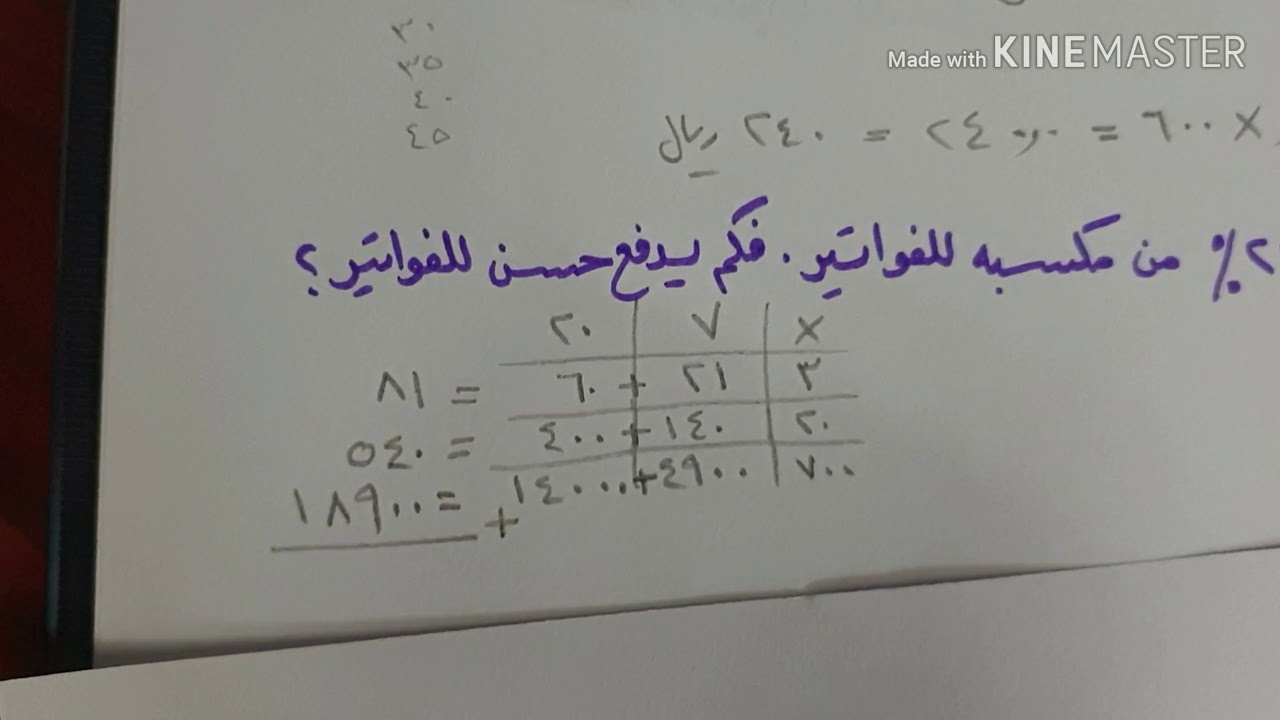 Made with KINEMASTER
٣٠
٣٥
٤٠
٤٥
× ٦٠٠ = ٢٤٠,٠٠ = ٢٤٠ ريال
٢٪ من مكسبه للفواتير. فكم يدفع حسن للفواتير؟
× ٧ ٢٠
٣ ٢١ + ٦٠ = ٨١
٢٠ ١٤٠ + ٤٠٠ = ٥٤٠
٧٠٠ ٤٩٠٠ + ١٤٠٠٠ = ١٨٩٠٠ +